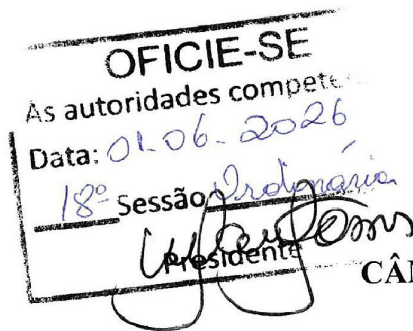 OFICIE-SE
As autoridades compete
Data: 01-06-2026
18ª Sessão Ordinária
Presidente
CÂM